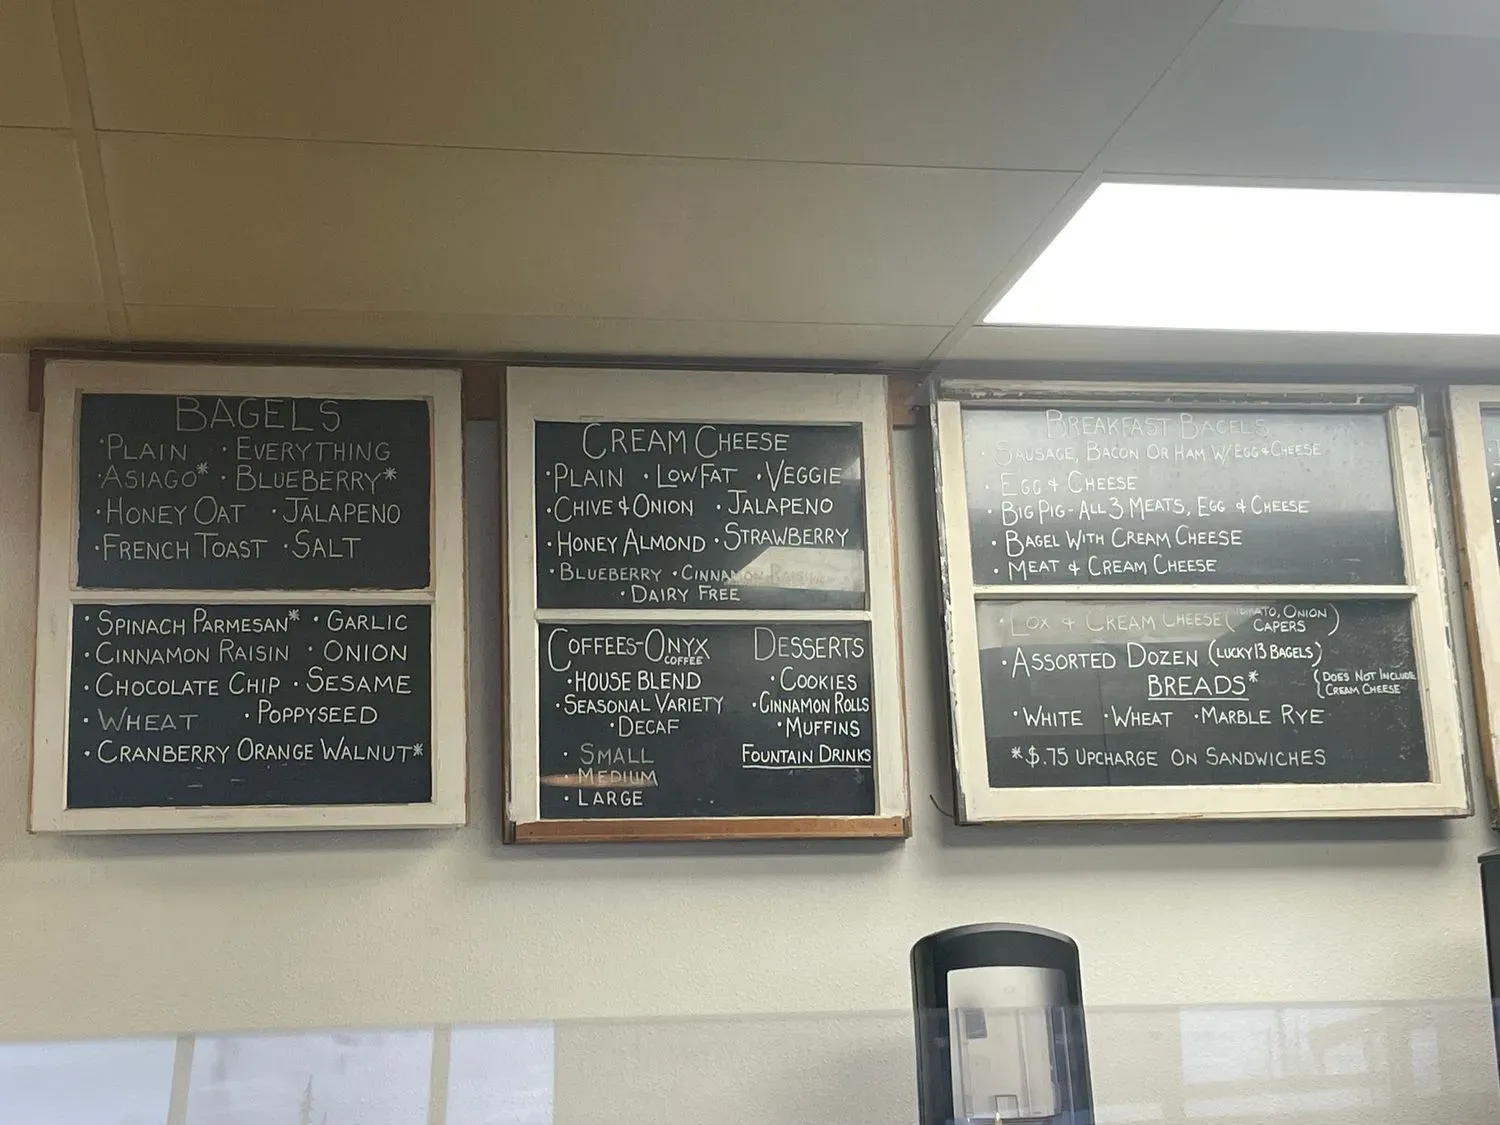 BAGELS
· PLAIN · EVERYTHING
· ASIAGO* · BLUEBERRY*
· HONEY OAT · JALAPENO
· FRENCH TOAST · SALT
· SPINACH PARMESAN* · GARLIC
· CINNAMON RAISIN · ONION
· CHOCOLATE CHIP · SESAME
· WHEAT · POPPYSEED
· CRANBERRY ORANGE WALNUT*
CREAM CHEESE
· PLAIN · LOW FAT · VEGGIE
· CHIVE & ONION · JALAPENO
· HONEY ALMOND · STRAWBERRY
· BLUEBERRY · CINNAMON RAISIN
· DAIRY FREE
COFFEES-ONYX
COFFEE
· HOUSE BLEND
· SEASONAL VARIETY
· DECAF
· SMALL
· MEDIUM
· LARGE
DESSERTS
· COOKIES
· CINNAMON ROLLS
· MUFFINS
FOUNTAIN DRINKS
BREAKFAST BAGELS
· SAUSAGE, BACON OR HAM W/ EGG & CHEESE
· EGG & CHEESE
· BIG PIG - ALL 3 MEATS, EGG & CHEESE
· BAGEL WITH CREAM CHEESE
· MEAT & CREAM CHEESE
· LOX & CREAM CHEESE (TOMATO, ONION
CAPERS)
· ASSORTED DOZEN (LUCKY 13 BAGELS)
(DOES NOT INCLUDE
CREAM CHEESE
BREADS*
· WHITE · WHEAT · MARBLE RYE
*$.75 UPCHARGE ON SANDWICHES